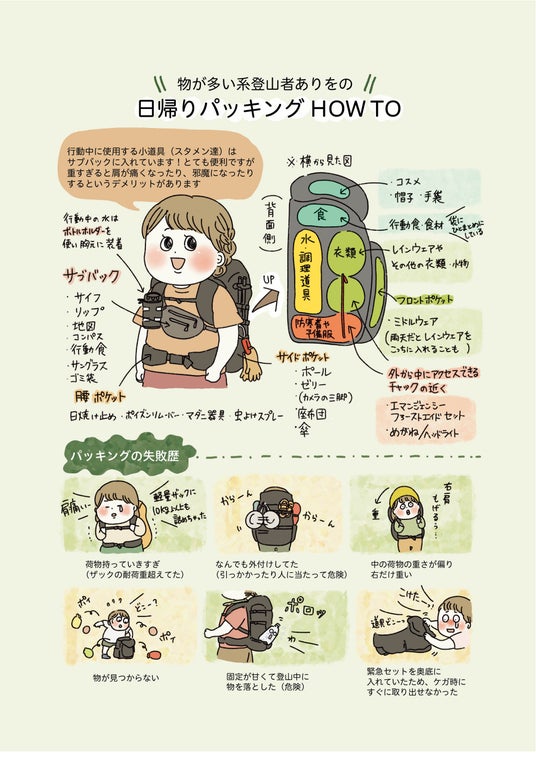 物が多い系登山者ありをの
日帰りパッキング HOW TO
行動中に使用する小道具（スタメン達）は
サブバックに入れています！とても便利ですが
重すぎると肩が痛くなったり、邪魔になったり
するというデメリットがあります
※横から見た図
行動中の水は
ボトルホルダーを
使い胸元に装着
サブバック
・サイフ
・リップ
・地図
コンパス
・行動食
・サングラス
ゴミ袋
腰ポケット
日焼け止め・ポイズンリムーバー・マダニ器具・虫よけスプレー
UP
（背面側）
食
水・調理道具
衣類
防寒着や
予備服
・コスメ
・帽子・手袋
行動食・食材
袋に
ひとまとめに
している
レインウェアや
その他の衣類・小物
フロントポケット
・ミドルウェア
（雨天だとレインウェアを
こっちに入れることも）
外から中にアクセスできる
チャックの近く
・エマージェンシー
ファーストエイドセット
・めがね/ヘッドライト
サイドポケット
・ポール
・ゼリー
（カメラの三脚）
・座布団
・傘
パッキングの失敗歴
肩痛い…
軽量ザックに
10kg以上も
詰めちゃった
荷物持っていきすぎ
（ザックの耐荷重超えてた）
からーん
からーん
なんでも外付けしてた
（引っかかったり人に当たって危険）
重
右肩
もげるぅ…
中の荷物の重さが偏り
右だけ重い
ポイ
どこ〜?
ポイ
物が見つからない
ポロッ
固定が甘くて登山中に
物を落とした（危険）
こけた…
道具どこ…
緊急セットを奥底に
入れていたため、ケガ時に
すぐに取り出せなかった